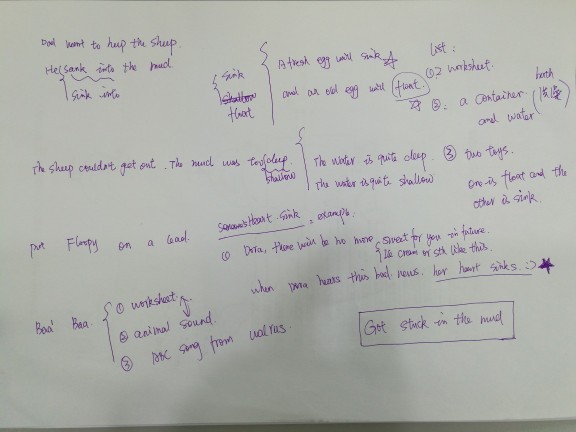 Dad want to help the sheep.
He sank into the mud
sink into
sink
shallow
float
A fresh egg will sink
and an old egg will float.
list:
① 2 worksheet.
②. a container
and water
both
The sheep couldn't get out. The mud was too deep.
shallow
The water is quite deep.
The water is quite shallow
③ two toys.
one is float and the
other is sink.
put Floopy on a lead.
Heart sink = example.
① Dora, there will be no more sweet for you in future.
Ice cream or sth like this.
when Dora hears this bad news. her heart sinks. :)
Baa' Baa.
① worksheet.
② animal sound.
③ ABC song from walrus.
Got stuck in the mud